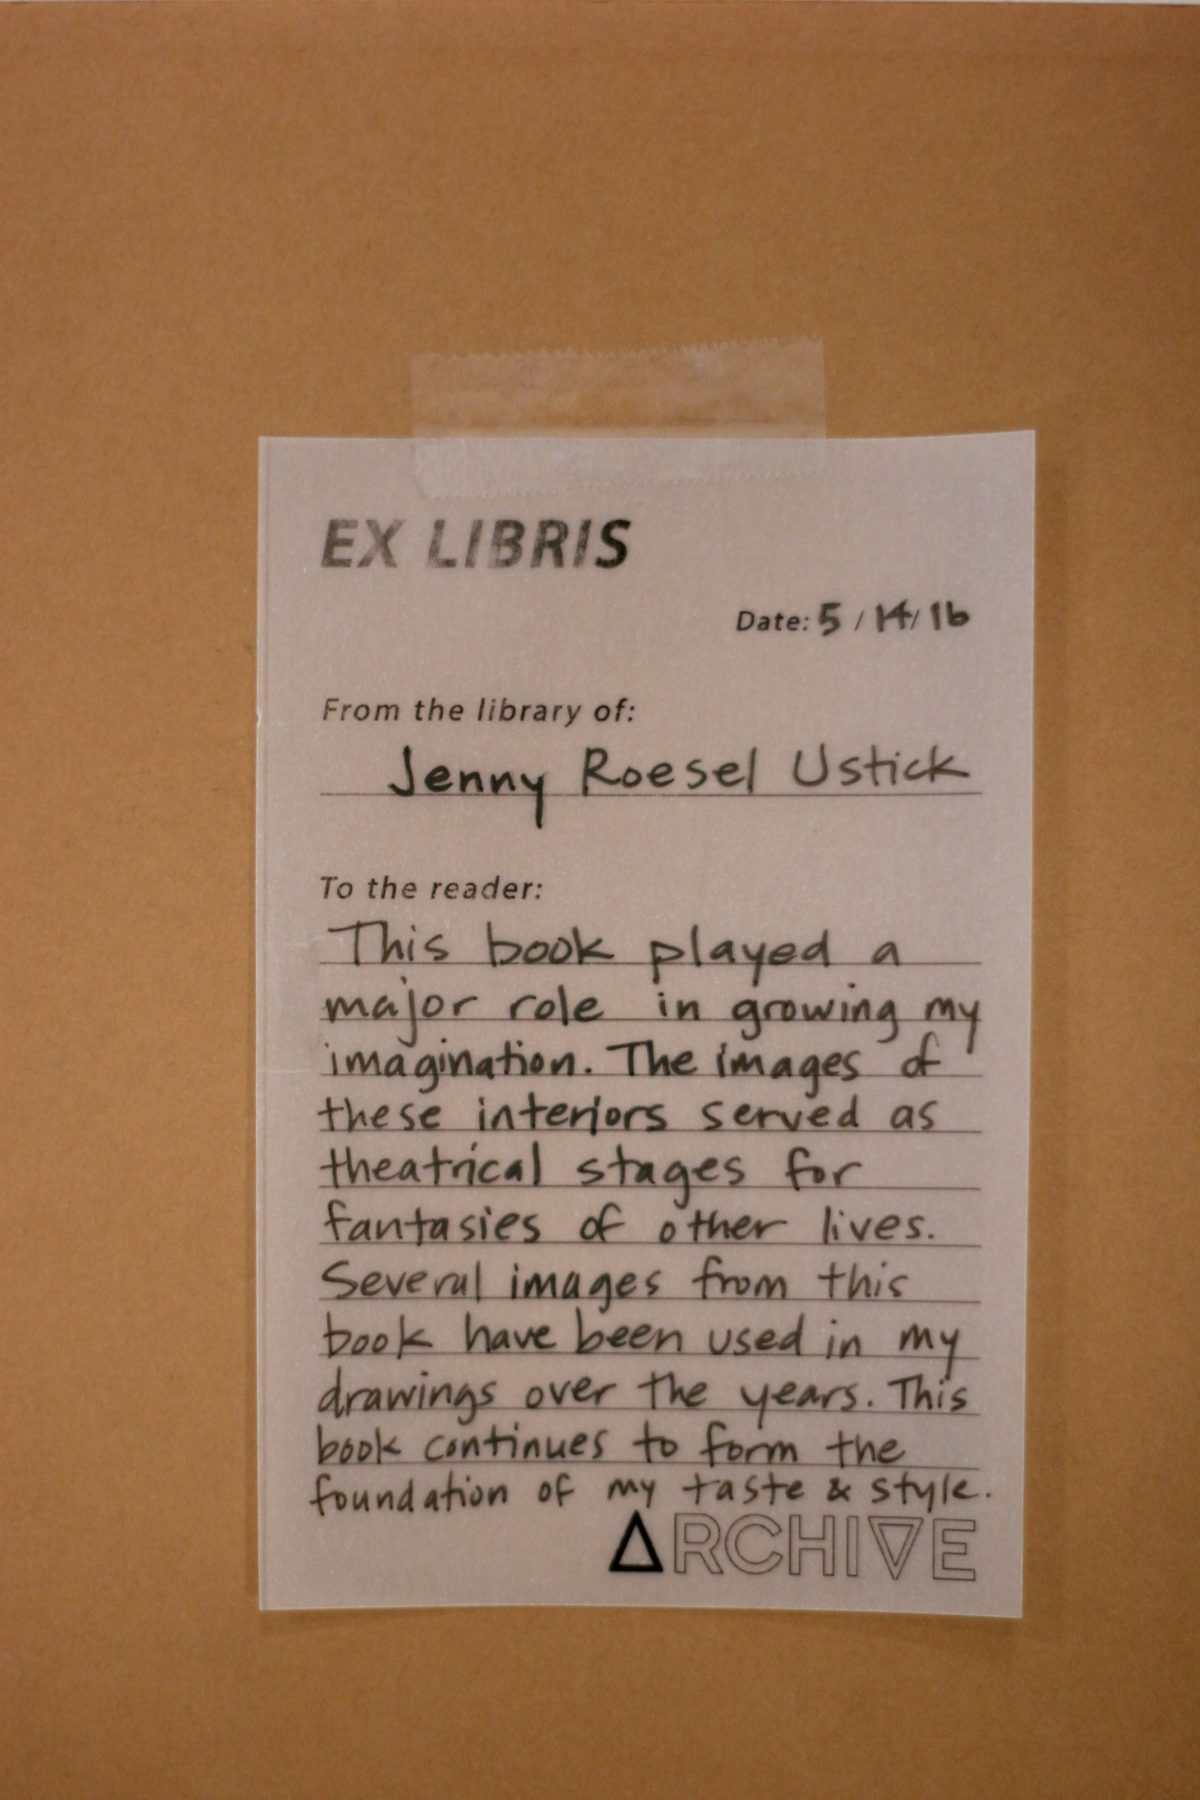 EX LIBRIS
Date: 5 / 14 / 16
From the library of:
Jenny Roesel Ustick
To the reader:
This book played a
major role in growing my
imagination. The images of
these interiors served as
theatrical stages for
fantasies of other lives.
Several images from this
book have been used in my
drawings over the years. This
book continues to form the
foundation of my taste & style.
ARCHIVE